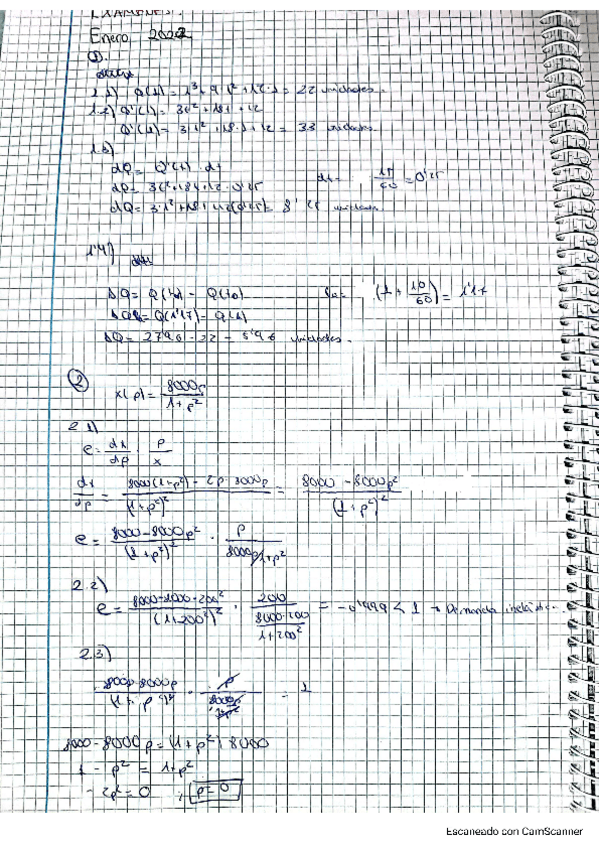 EXAMENES.
Enero 2022
1).
1.1) Q(1) = 1³ + 9·1² + 12·1 = 22 unidades.
1.2) Q'(t) = 3t² + 18t + 12
Q'(1) = 3·1² + 18·1 + 12 = 33 unidades.
1.3)
dQ = Q'(t) · dt dt = 15/60 = 0'25
dQ = 3t² + 18t + 12 · 0'25
dQ = 3·1² + 18 + 12(0'25) = 8'25 unidades.
1.4)
ΔQ = Q(t₁) - Q(t₀) (1 + 10/60) = 1'17
ΔQ = Q(1'17) - Q(1)
ΔQ = 27'96 - 22 = 5'96 unidades.
2
x(p) = 8000p / 1+p²
2.1)
e = dx/dp · p/x
dx/dp = 8000(1+p²) - 2p·8000p / (1+p²)² = 8000 - 8000p² / (1+p²)²
e = 8000 - 8000p² / (1+p²)² · p / 8000p/1+p²
2.2)
e = 8000 - 8000·200² / (1+200²)² · 200 / 8000·200 / 1+200² = -0'999 < 1 → Demanda inelástica.
2.3)
= 1
8000 - 8000p = (1+p²) · 8000
1 - p² = 1+p²
- 2p² = 0 ; p = 0
Escaneado con CamScanner